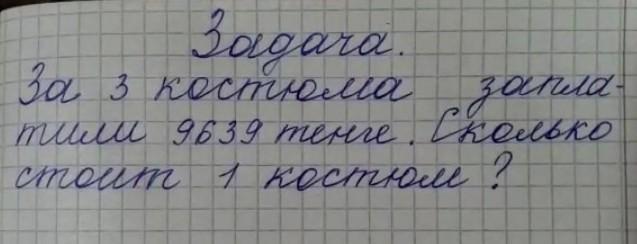 Задача.
За 3 костюма запла-
тили 9639 тенге. Сколько
стоит 1 костюм?